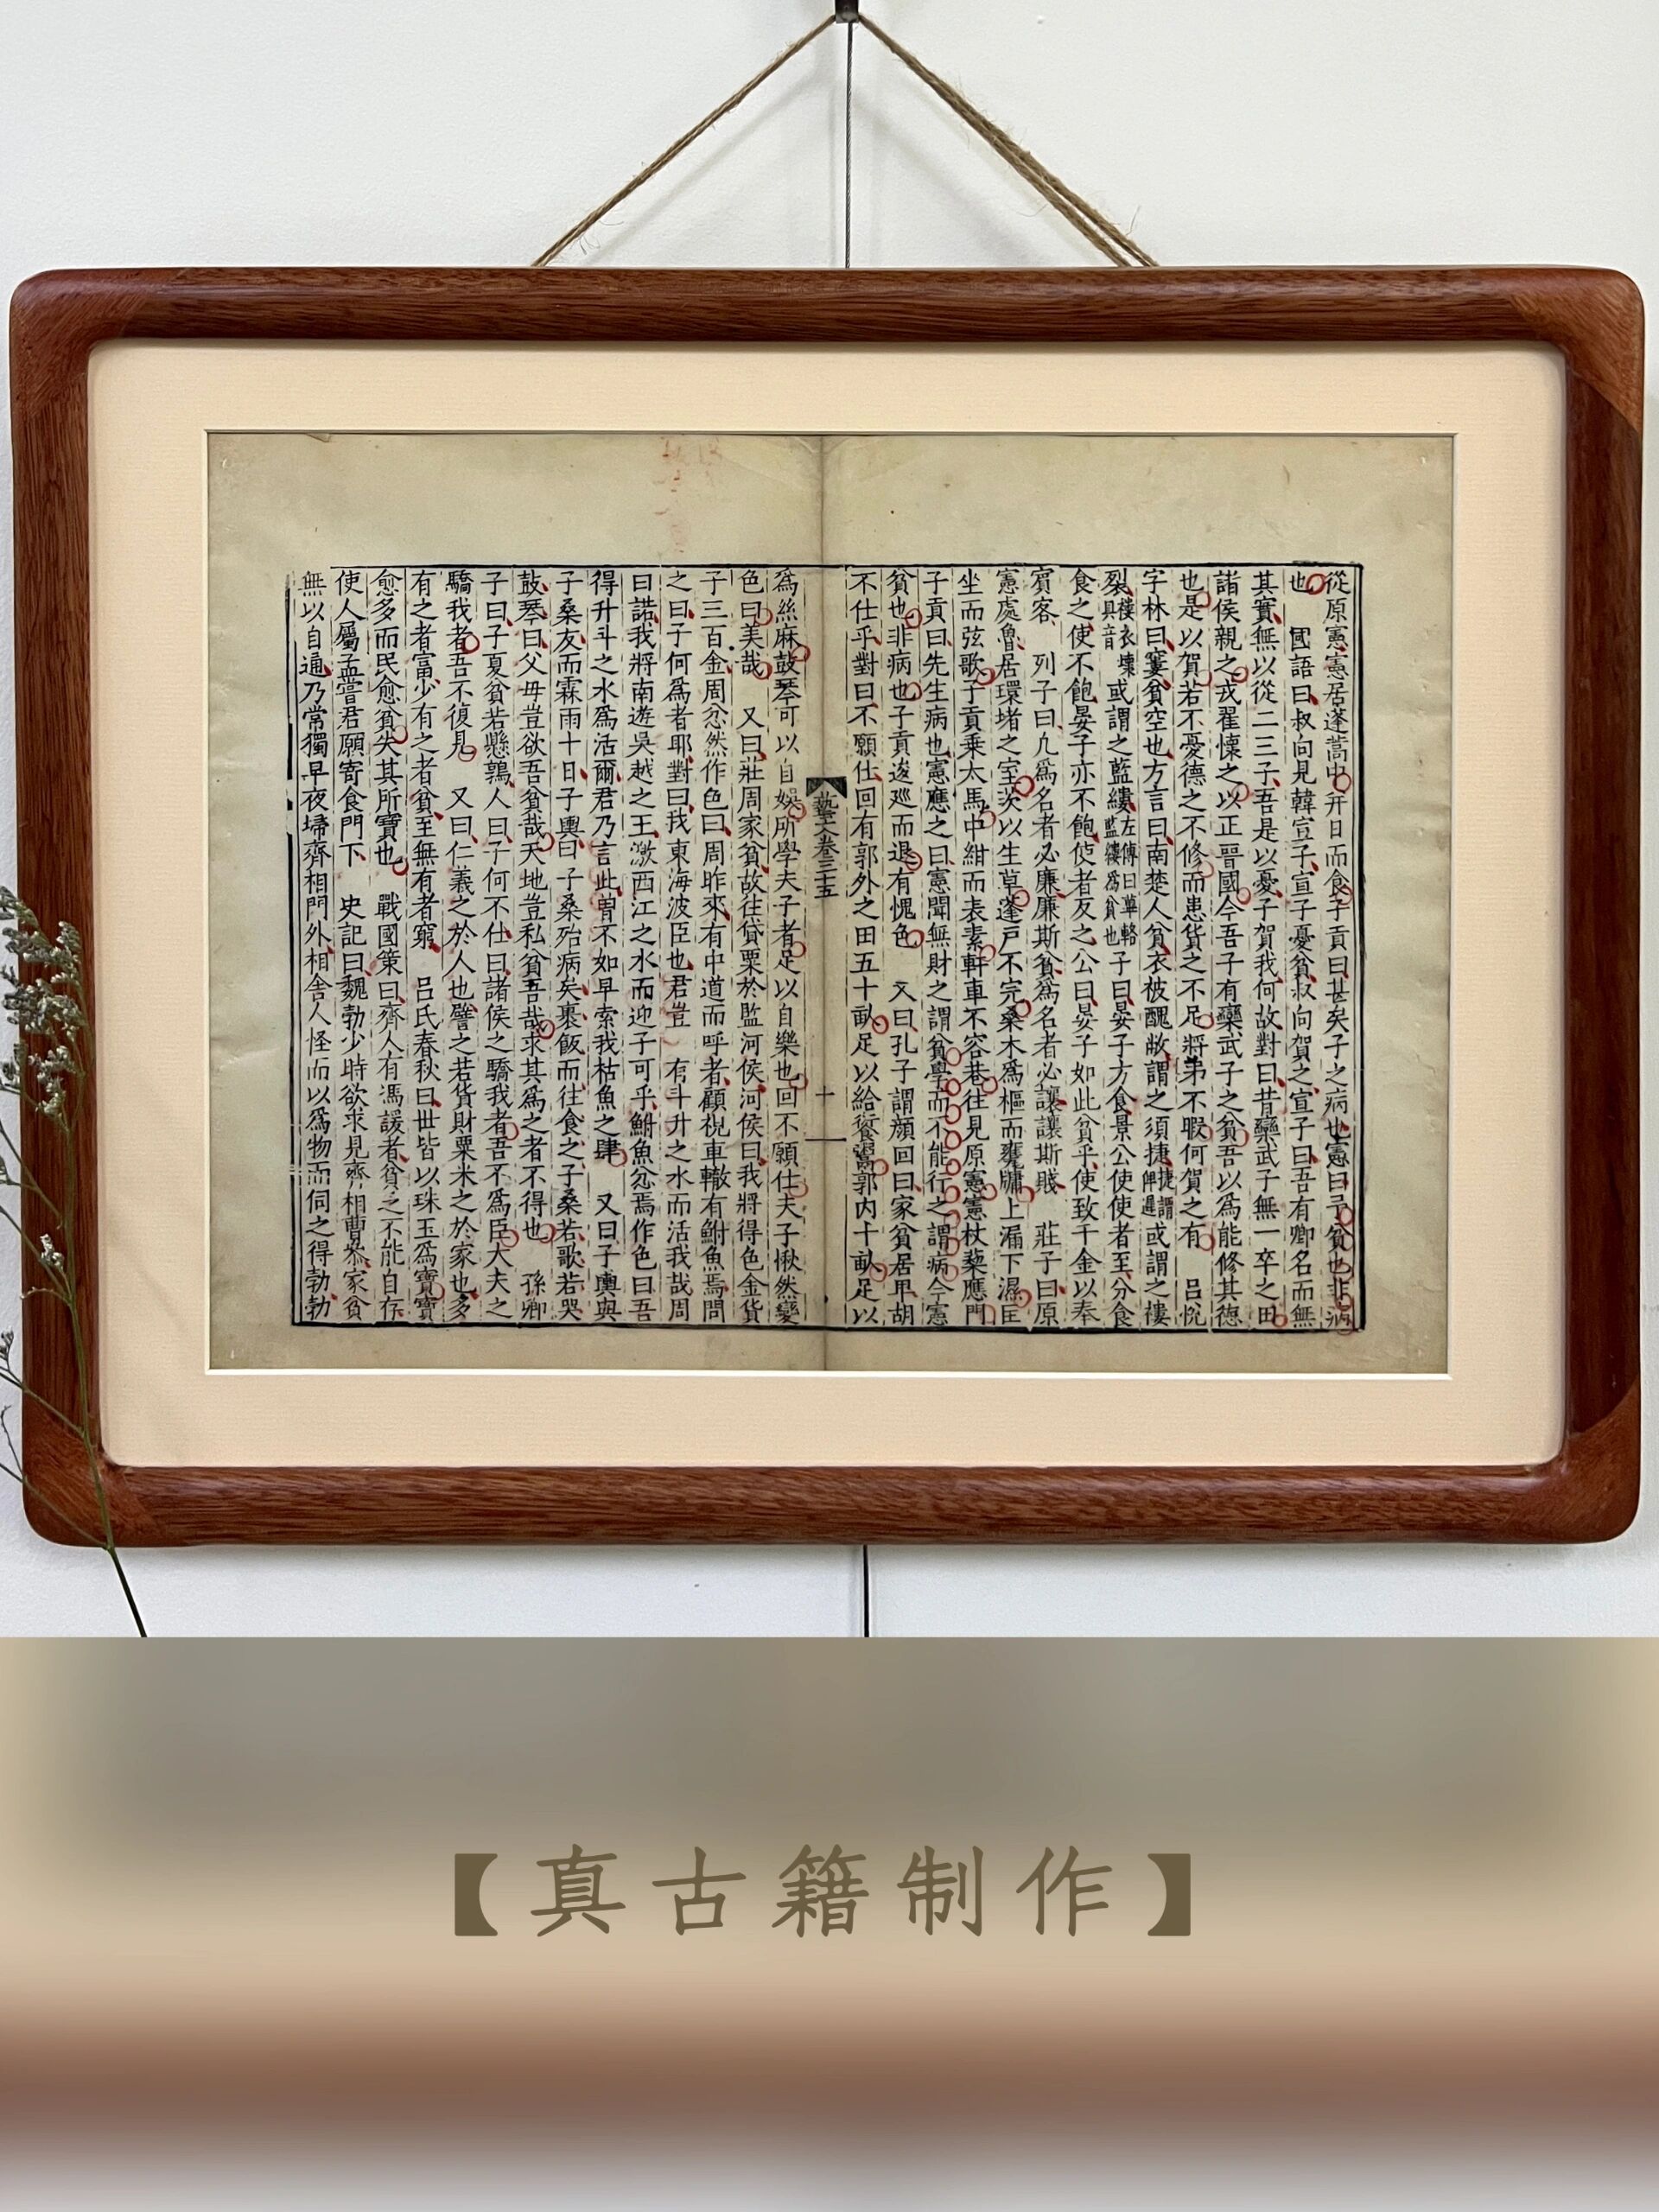 從原憲憲居蓬蒿中并日而食子貢曰甚矣子之病也憲曰予貧也非病
也 國語曰叔向見韓宣子宣子憂貧叔向賀之宣子曰吾有卿名而無
其實無以從二三子吾是以憂子賀我何故對曰昔欒武子無一卒之田
諸侯親之戎翟懷之以正晉國今吾子有欒武子之貧吾以爲能修其德
也是以賀若不憂德之不修而患貨之不足將弔不暇何賀之有 呂忱
字林曰窶貧空也方言曰南楚人貧衣被醜敝謂之須捷捷謂狎㺒或謂之褸
裂褸衣壞具音或謂之藍縷左傳曰蓽輅藍縷爲貧也 子曰晏子方食景公使使者至分食
食之使不飽晏子亦不飽使者反之公曰晏子如此貧乎使致千金以奉
賓客 列子曰凡爲名者必廉廉斯貧爲名者必讓讓斯賤 莊子曰原
憲處魯居環堵之室茨以生草蓬戶不完桑木爲樞而甕牖上漏下濕匡
坐而弦歌子貢乘大馬中紺而表素軒車不容巷往見原憲憲杖藜應門
子貢曰先生病也憲應之曰憲聞無財之謂貧學而不能行之謂病今憲
貧也非病也子貢逡巡而退有愧色 又曰孔子謂顏回曰家貧居卑胡
不仕乎對曰不願仕回有郭外之田五十畝足以給饘粥郭内十畝足以
藝文卷三十五
十
爲絲麻鼓琴可以自娛所學夫子者足以自樂也回不願仕夫子愀然變
色曰美哉 又曰莊周家貧故往貸粟於監河侯河侯曰我將得色金貨
子三百金周忿然作色曰周昨來有中道而呼者顧視車轍有鮒魚焉問
之曰子何爲者耶對曰我東海波臣也君豈 有斗升之水而活我哉周
曰諾我將南遊吳越之王激西江之水而迎子可乎鮒魚忿焉作色曰吾
得升斗之水爲活爾君乃言此曽不如早索我枯魚之肆 又曰子輿與
子桑友而霖雨十日子輿曰子桑殆病矣裹飯而往食之子桑若歌若哭
鼓琴曰父毋豈欲吾貧哉天地豈私貧吾哉求其爲之者不得也 孫卿
子曰子夏貧若懸鶉人曰子何不仕曰諸侯之驕我者吾不爲臣大夫之
驕我者吾不復見 又曰仁義之於人也譬之若貨財粟米之於家也多
有之者富少有之者貧至無有者窮 呂氏春秋曰世皆以珠玉爲寶寶
愈多而民愈貧失其所寶也 戰國策曰齊人有馮諼者貧之不能自存
使人屬孟嘗君願寄食門下 史記曰魏勃少時欲求見齊相曹參家貧
無以自通乃常獨早夜埽齊相門外相舍人怪而以爲物而伺之得勃勃
【真古籍制作】